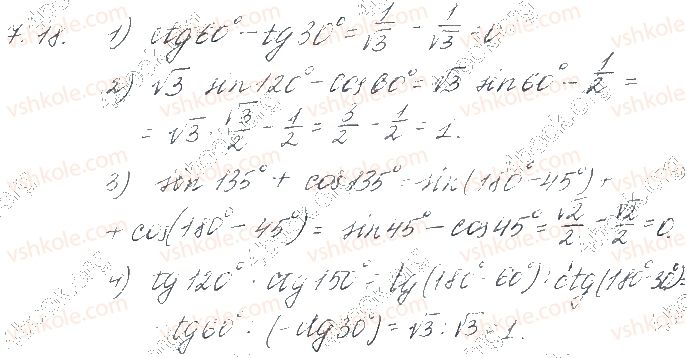 7.18. 1) ctg60° - tg30° = 1/√3 - 1/√3 = 0
2) √3 sin120° - cos60° = √3 sin60° - 1/2 =
= √3 · √3/2 - 1/2 = 3/2 - 1/2 = 1.
3) sin135° + cos135° = sin(180° - 45°) +
+ cos(180° - 45°) = sin45° - cos45° = √2/2 - √2/2 = 0
4) tg120° · ctg150° = tg(180° - 60°) · ctg(180° - 30°) =
tg60° · (-ctg30°) = √3 : √3 = 1.
vshkole.com